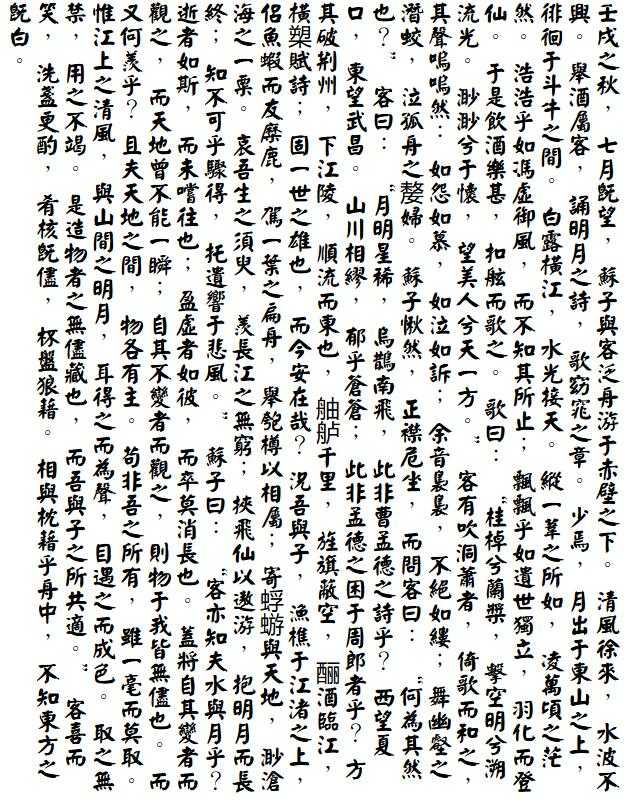 壬戌之秋，七月既望，蘇子與客泛舟游于赤壁之下。清風徐來，水波不
興。舉酒屬客，誦明月之詩，歌窈窕之章。少焉，月出于東山之上，
徘徊于斗牛之間。白露橫江，水光接天。縱一葦之所如，凌萬頃之茫
然。浩浩乎如馮虛御風，而不知其所止；飄飄乎如遺世獨立，羽化而登
仙。于是飲酒樂甚，扣舷而歌之。歌曰：“桂棹兮蘭槳，擊空明兮溯
流光。渺渺兮于懷，望美人兮天一方。”客有吹洞蕭者，倚歌而和之，
其聲嗚嗚然：如怨如慕，如泣如訴；余音裊裊，不絕如縷；舞幽壑之
潛蛟，泣孤舟之嫠婦。蘇子愀然正襟危坐，而問客曰：“何為其然
也？”客曰：“月明星稀，烏鵲南飛，此非曹孟德之詩乎？西望夏
口，東望武昌。山川相繆，郁乎蒼蒼；此非孟德之困于周郎者乎？方
其破荆州，下江陵，順流而東也，舳舻千里，旌旗蔽空，酾酒臨江，
橫槊賦詩；固一世之雄也，而今安在哉？況吾與子，漁樵于江渚之上，
侶魚蝦而友麋鹿，駕一葉之扁舟，舉匏樽以相屬；寄蜉蝣與天地，渺滄
海之一粟。哀吾生之須臾，羨長江之無窮；挾飛仙以遨游，抱明月而長
終；知不可乎驟得，托遺響于悲風。”蘇子曰：“客亦知夫水與月乎？
逝者如斯，而未嚐往也；盈虛者如彼，而卒莫消長也。蓋將自其變者而
觀之，而天地曾不能一瞬；自其不變者而觀之，則物于我皆無儘也。而
又何羨乎？且夫天地之間，物各有主。苟非吾之所有，雖一毫而莫取。
惟江上之清風，與山間之明月，耳得之而為聲，目遇之而成色。取之無
禁，用之不竭。是造物者之無儘藏也，而吾與子之所共適。”客喜而
笑，洗盞更酌，肴核既儘，杯盤狼藉。相與枕藉乎舟中，不知東方之
既白。